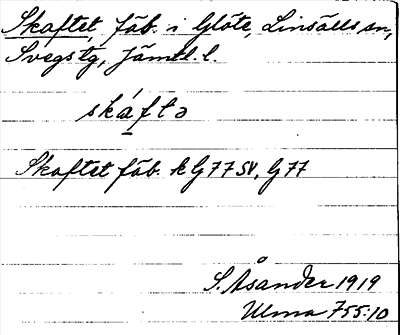 Skaftet, fäb. i Glöte, Linsälls sn,
Svegs tg, Jämtl. l.
skáftə
Skaftet fäb. k G77 SV, G77
S. Åsander 1919
Ulma 755:10